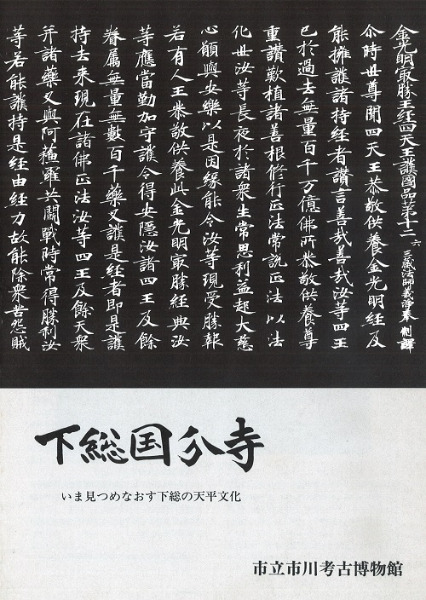 金光明最勝王經四天王護國品第十二 六 三藏法師義淨奉 制譯
尒時世尊聞四天王恭敬供養金光明經及
能擁護諸持經者讚言善哉善哉汝等四王
已於過去無量百千万億佛所恭敬供養尊
重讚歎植諸善根修行正法常說正法以法
化世汝等長夜於諸衆生常思利益起大慈
心願與安樂以是因緣能令汝等現受勝報
若有人王恭敬供養此金光明最勝經典汝
等應當勤加守護令得安隱汝諸四王及餘
眷屬無量無數百千藥叉護是經者即是護
持去來現在諸佛正法汝等四王及餘天衆
并諸藥叉與阿蘓羅共鬪戰時常得勝利汝
等若能護持是經由經力故能除衆苦怨賊
下総国分寺
いま見つめなおす下総の天平文化
市立市川考古博物館